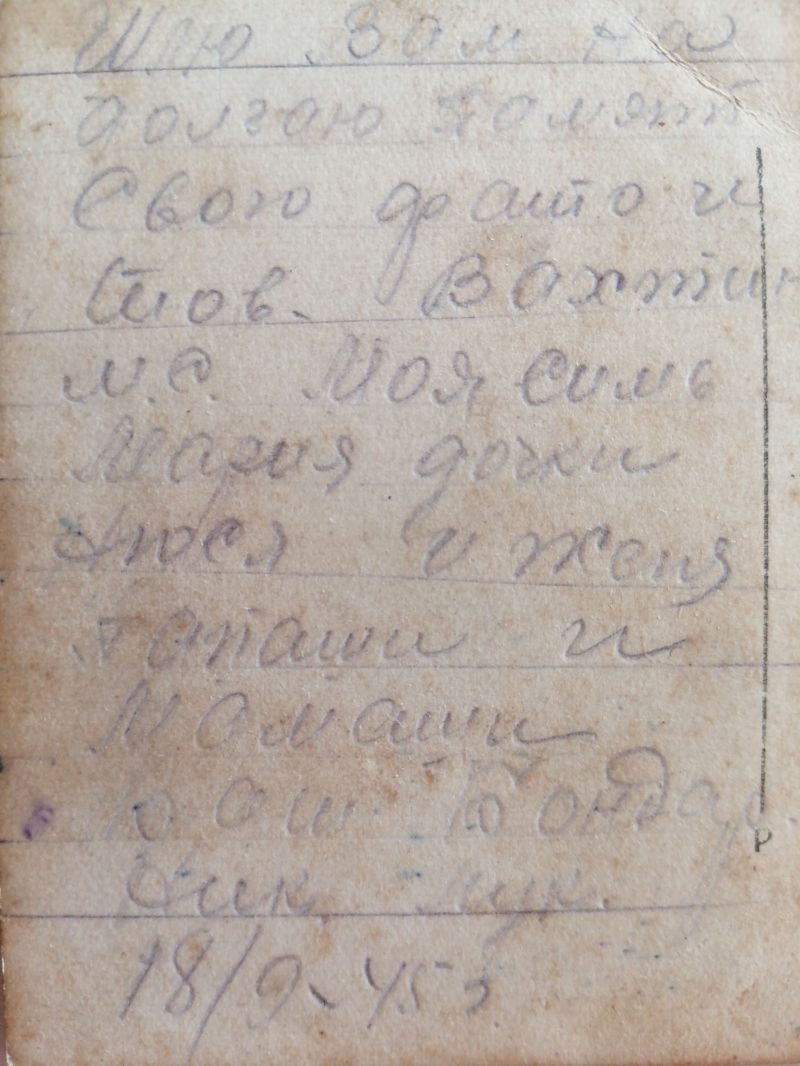 Шлю Вам на
долгаю памят
Свою фатто и
тов. Вахтин
М.С. Моя симь
Мария дочки
Нюся и Женя
Папаши и
Мамаши
Ваш Бондар.
Ник. Лук.
18/9-45 г